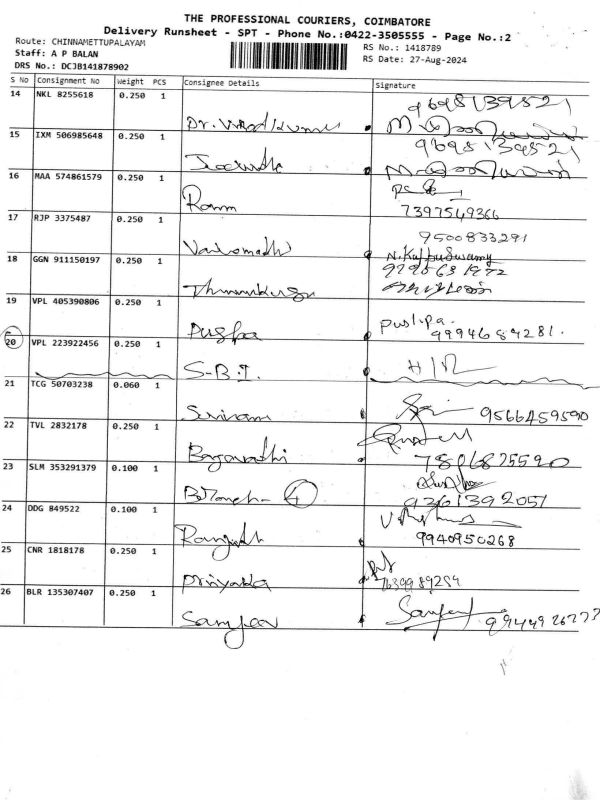 THE PROFESSIONAL COURIERS, COIMBATORE
Delivery Runsheet - SPT - Phone No.:0422-3505555 - Page No.:2
Route: CHINNAMETTUPALAYAM
RS No.: 1418789
Staff: A P BALAN
RS Date: 27-Aug-2024
DRS No.: DCJB141878902
S No Consignment No Weight PCS Consignee Details Signature
14 NKL 8255618 0.250 1
9698139521
Dr.
15 IXM 506985648 0.250 1
9698139521
16 MAA 574861579 0.250 1
Ramm
7397549366
17 RJP 3375487 0.250 1
9500833291
N. Kuppuswamy
18 GGN 911150197 0.250 1
19 VPL 405390806 0.250 1
Puspa
Puslipa.
9994684281.
20 VPL 223922456 0.250 1
S-B.I.
21 TCG 50703238 0.060 1
Sriram
9566459590
22 TVL 2832178 0.250 1
7806825590
23 SLM 353291379 0.100 1
4
9361392051
24 DDG 849522 0.100 1
Ranjith
9940950268
25 CNR 1818178 0.250 1
Priyanka
26 BLR 135307407 0.250 1
Sanjeev